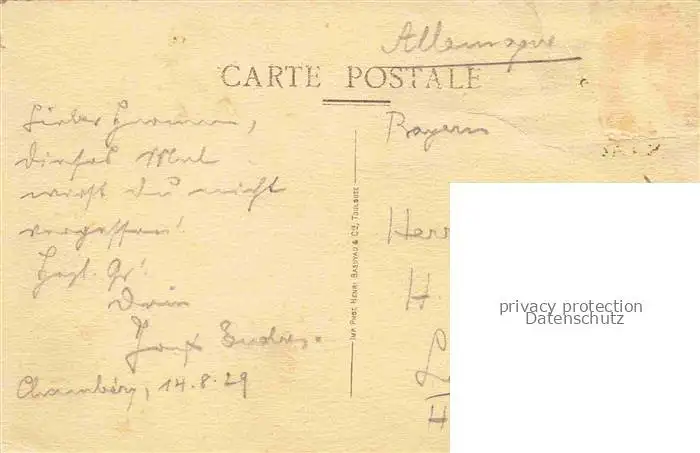 Allemagne
CARTE POSTALE
Lieber
dieses Mal
wirst du nicht
vergessen!
Hrzl. Gr!
Dein
Chambéry, 14.8.29
Bayern
Herr
H.
H
IMP. PHOT. HENRI BASUYAU & Cie, TOULOUSE
privacy protection
Datenschutz